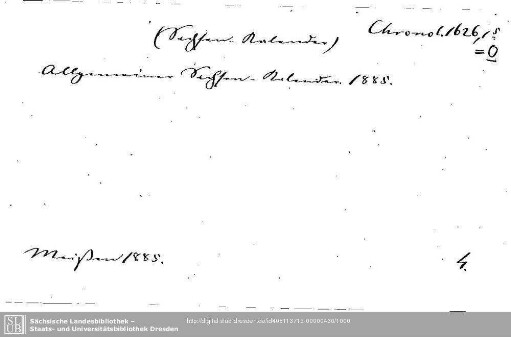 (Sachsen-Kalender) Chronol. 1626, 15
= 0
Allgemeiner Sachsen-Kalender 1885.
Meißen 1885. 4.
Sächsische Landesbibliothek –
Staats- und Universitätsbibliothek Dresden